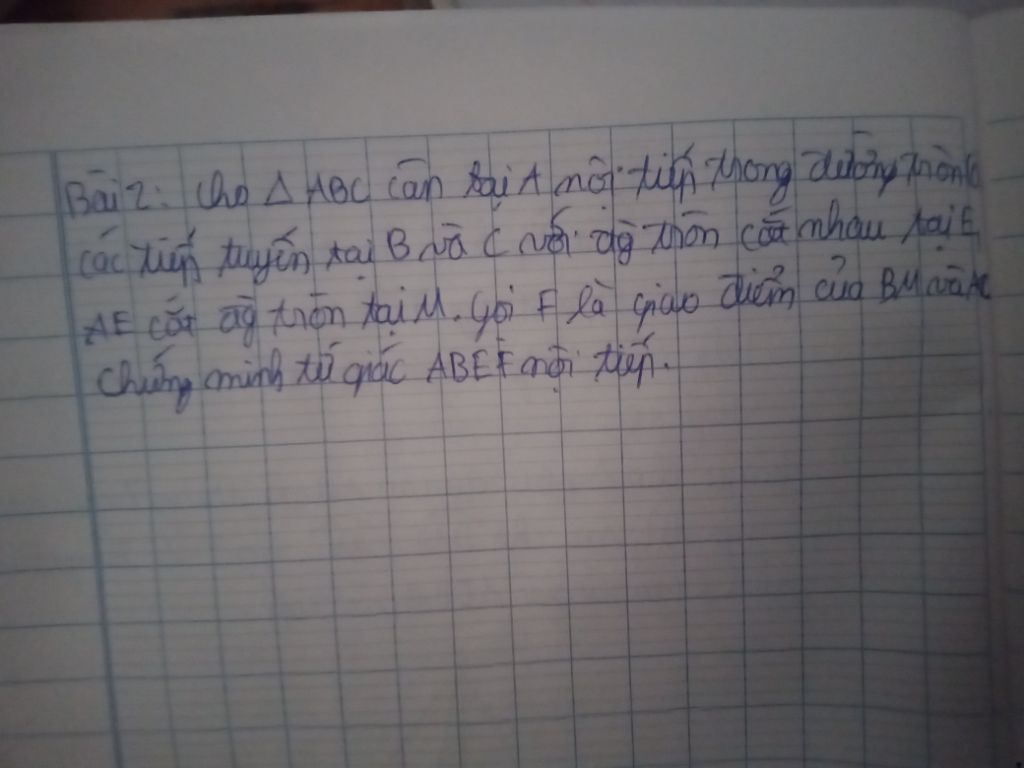 Bài 2: Cho △ ABC cân tại A nội tiếp trong đường tròn
các tiếp tuyến tại B và C với đg tròn cắt nhau tại E,
AE cắt đg tròn tại M. Gọi F là giao điểm của BM và AC
Chứng minh tứ giác ABEF nội tiếp.